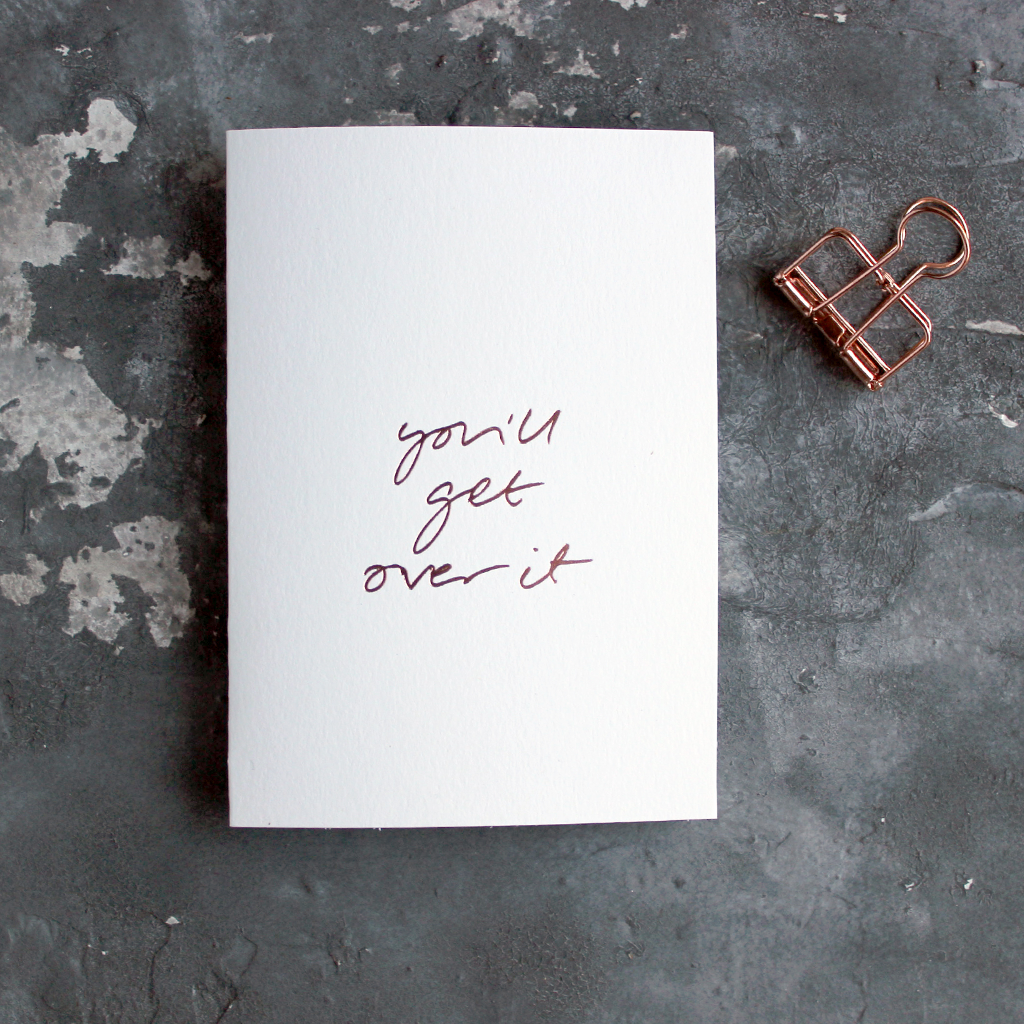 you'll
get
over it